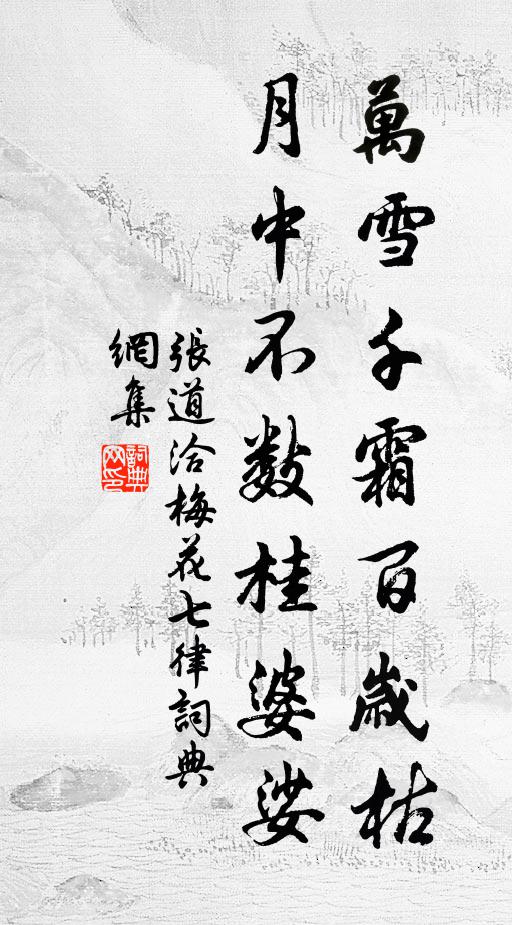 萬雪千霜百歲枯
月中不數桂婆娑
張道洽梅花七律詞典
網集
詞典
网印